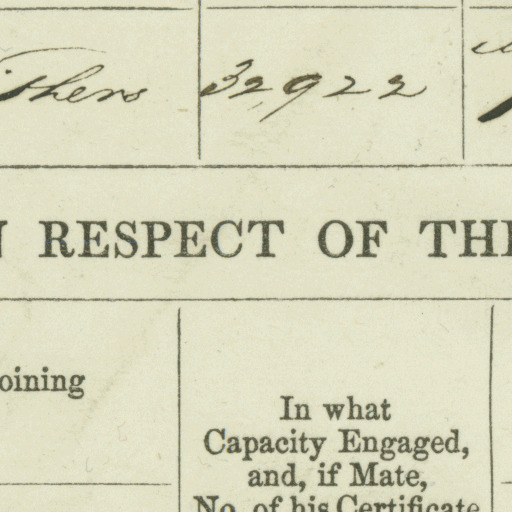 32922
RESPECT OF THE
oining
In what
Capacity Engaged,
and, if Mate,
No. of his Certificate